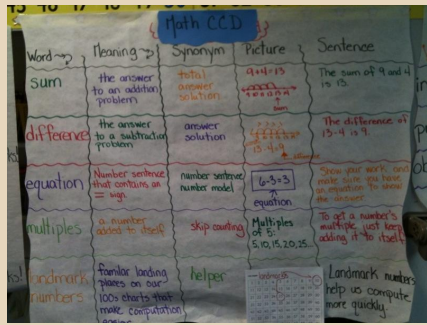 Math CCD
Word → Meaning → Synonym Picture Sentence
sum
the answer
to an addition
problem
total
answer
solution
9+4=13
sum
The sum of 9 and 4
is 13.
difference
the answer
to a subtraction
problem
answer
solution
13-4=9
The difference of
13-4 is 9.
equation
Number sentence
that contains an
= sign.
number sentence
number model
6-3=3
equation
Show your work and
make sure you have
an equation to show
the answer.
multiples
a number
added to itself
skip counting
Multiples
of 5:
5,10,15,20,25
To get a number's
multiple just keep
adding it to itself
landmark
numbers
familar landing
places on our
100s charts that
make computation
helper
Landmark numbers
help us compute
more quickly.